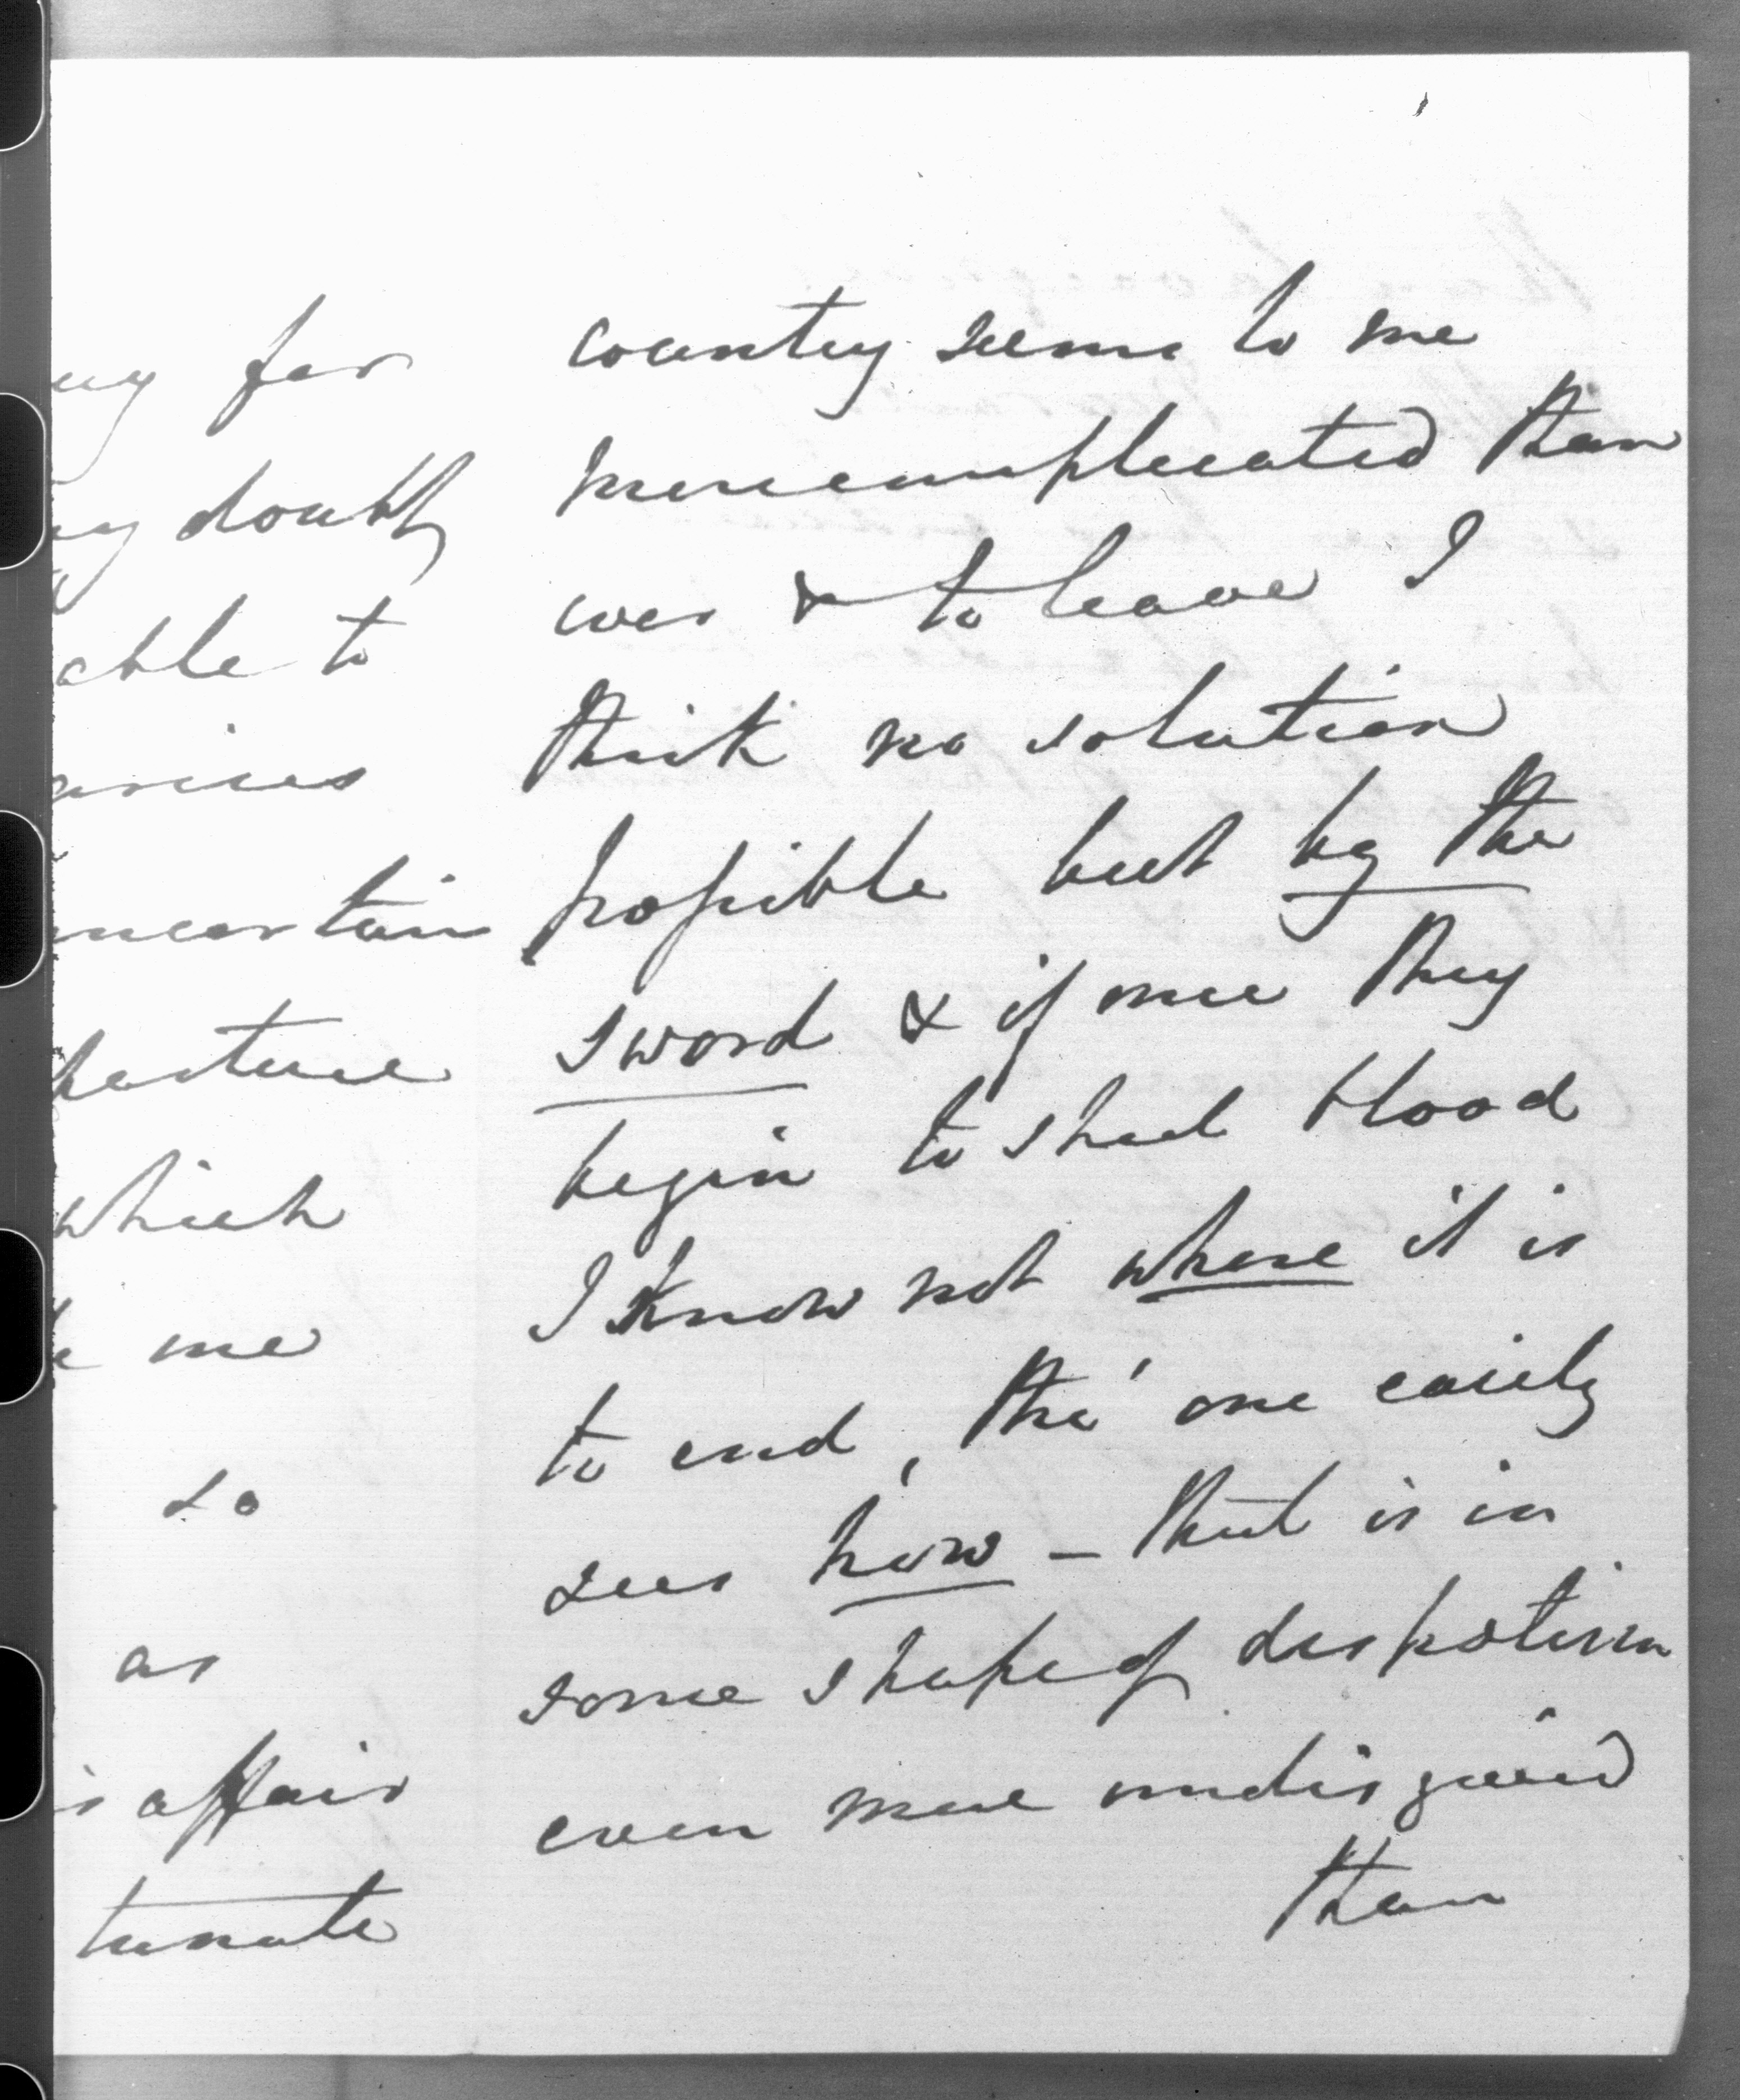 ny for
ny doubt
able to
uncertain
parture
which
me
so
as
is affair
tunate
country seems to me
more complicated than
ever & to leave I
think no solution
possible but by the
sword & if once they
begin to shed blood
I know not where it is
to end, tho' one easily
sees how – that is in
some shape of despotism
even more undisguised
than